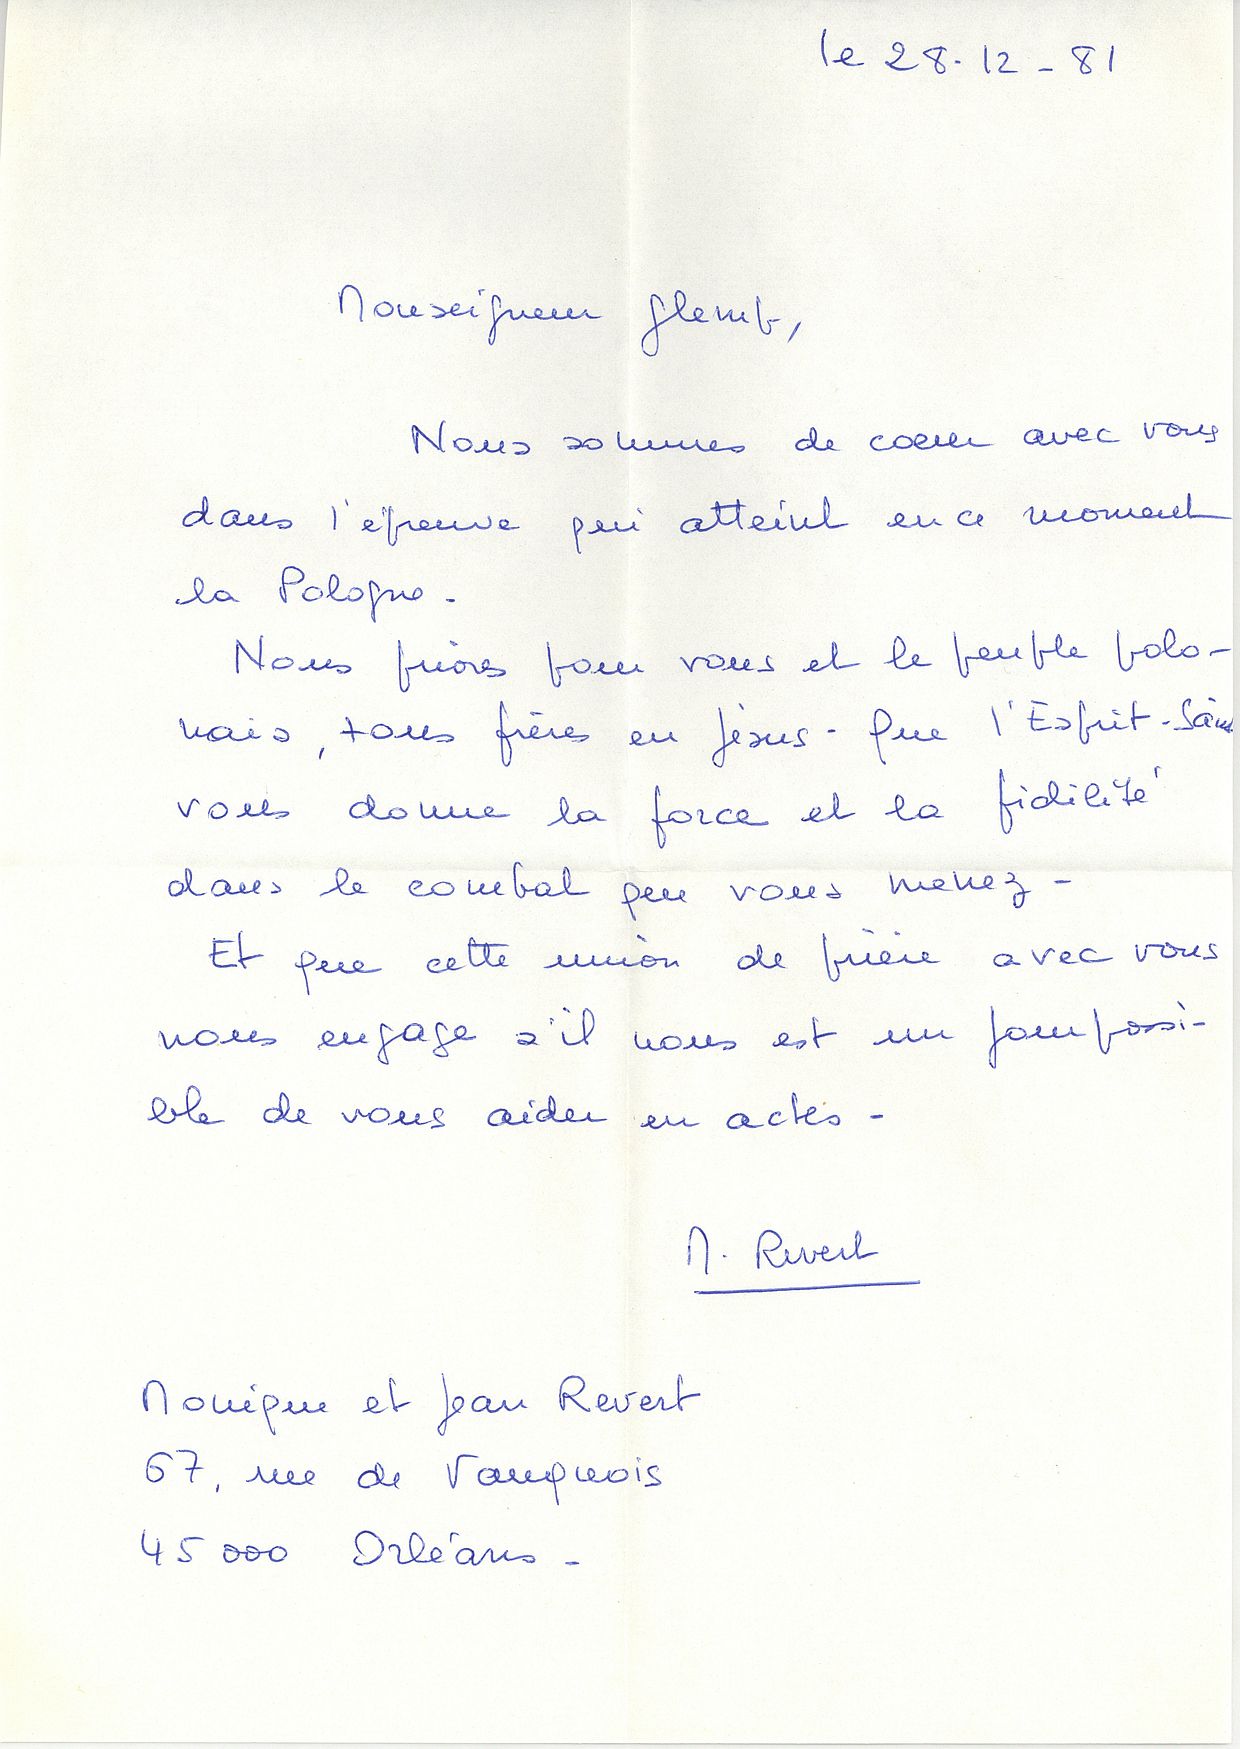 le 28.12-81
Monseigneur Glemb,
Nous sommes de coeur avec vous
dans l'épreuve qui atteint en ce moment
la Pologne.
Nous prions pour vous et le peuple polo-
nais, tous frères en Jésus. Que l'Esprit-Saint
vous donne la force et la fidélité
dans le combat que vous menez -
Et que cette union de prière avec vous
nous engage s'il nous est un jour possi-
ble de vous aider en actes -
M. Revert
Monique et Jean Revert
67, rue de Vauquois
45000 Orléans -